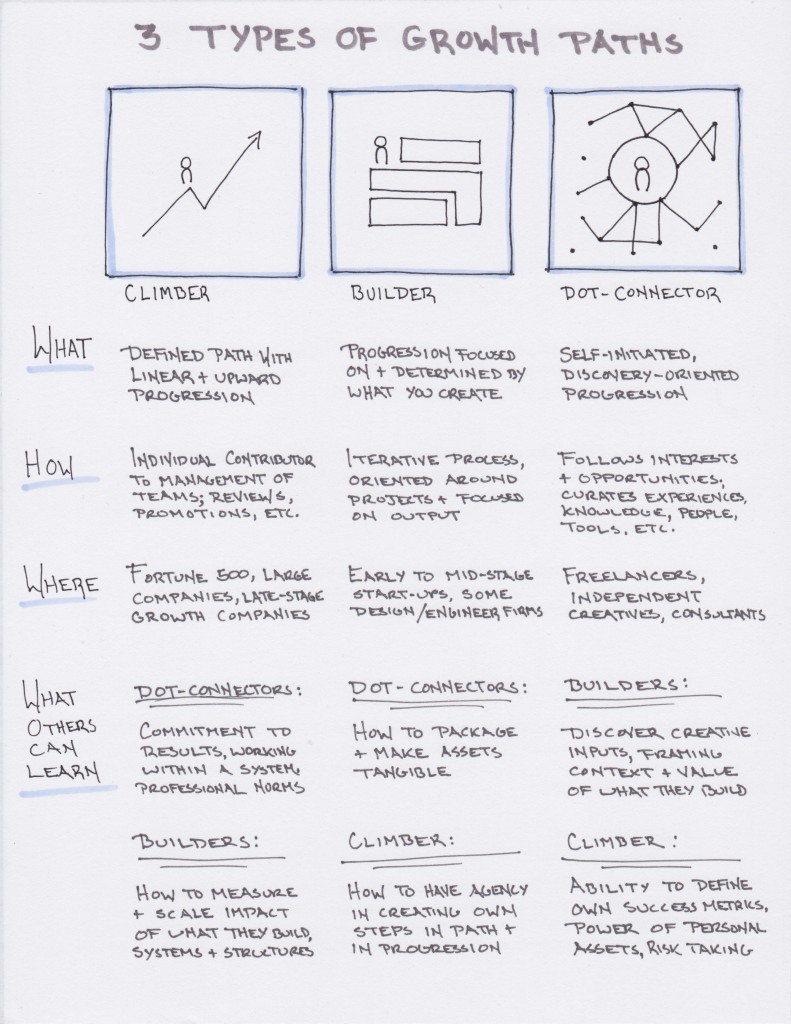 3 TYPES OF GROWTH PATHS
CLIMBER
BUILDER
DOT-CONNECTOR
WHAT
DEFINED PATH WITH
LINEAR + UPWARD
PROGRESSION
PROGRESSION FOCUSED
ON + DETERMINED BY
WHAT YOU CREATE
SELF-INITIATED,
DISCOVERY-ORIENTED
PROGRESSION
HOW
INDIVIDUAL CONTRIBUTOR
TO MANAGEMENT OF
TEAMS; REVIEWS,
PROMOTIONS, ETC.
ITERATIVE PROCESS,
ORIENTED AROUND
PROJECTS + FOCUSED
ON OUTPUT
FOLLOWS INTERESTS
+ OPPORTUNITIES,
CURATES EXPERIENCES,
KNOWLEDGE, PEOPLE,
TOOLS, ETC.
WHERE
FORTUNE 500, LARGE
COMPANIES, LATE-STAGE
GROWTH COMPANIES
EARLY TO MID-STAGE
START-UPS, SOME
DESIGN/ENGINEER FIRMS
FREELANCERS,
INDEPENDENT
CREATIVES, CONSULTANTS
WHAT
OTHERS
CAN
LEARN
DOT-CONNECTORS:
COMMITMENT TO
RESULTS, WORKING
WITHIN A SYSTEM,
PROFESSIONAL NORMS
DOT-CONNECTORS:
HOW TO PACKAGE
+ MAKE ASSETS
TANGIBLE
BUILDERS:
DISCOVER CREATIVE
INPUTS, FRAMING
CONTEXT + VALUE
OF WHAT THEY BUILD
BUILDERS:
HOW TO MEASURE
+ SCALE IMPACT
OF WHAT THEY BUILD,
SYSTEMS + STRUCTURES
CLIMBER:
HOW TO HAVE AGENCY
IN CREATING OWN
STEPS IN PATH +
IN PROGRESSION
CLIMBER:
ABILITY TO DEFINE
OWN SUCCESS METRICS,
POWER OF PERSONAL
ASSETS, RISK TAKING